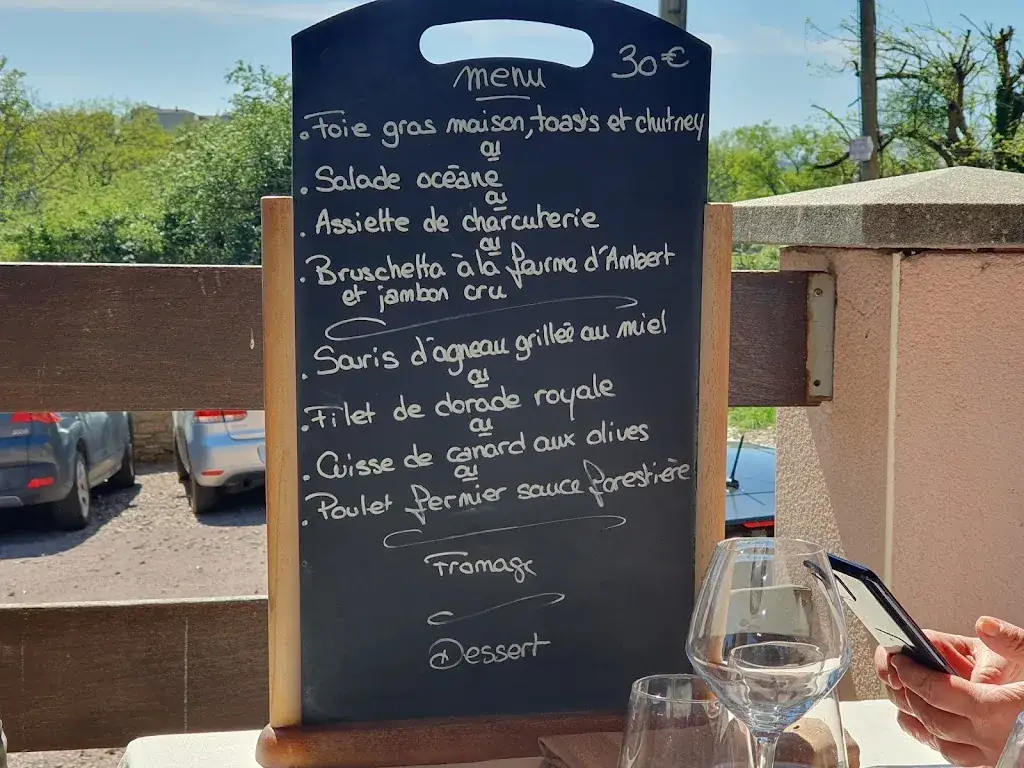 menu 30€
. Foie gras maison, toasts et chutney
ou
. Salade océane
ou
. Assiette de charcuterie
ou
. Bruschetta à la fourme d'Ambert
et jambon cru
. Souris d'agneau grillée au miel
ou
. Filet de dorade royale
ou
. Cuisse de canard aux olives
ou
. Poulet fermier sauce forestière
Fromage
Dessert